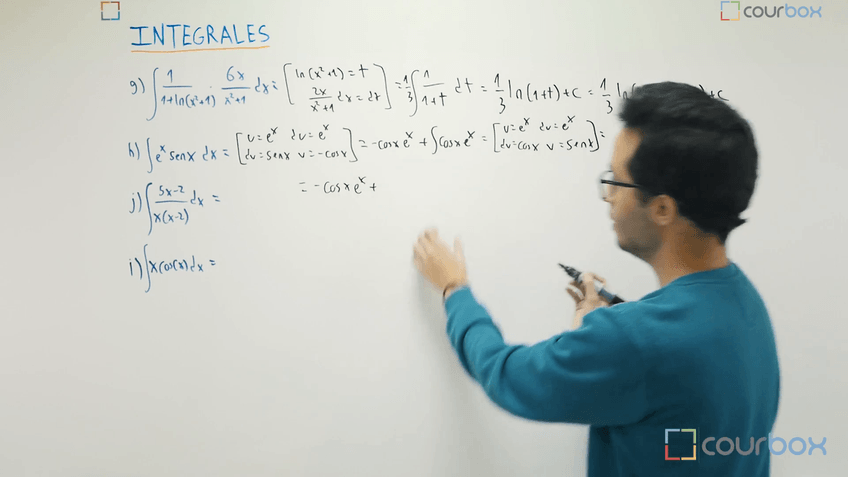 courbox
INTEGRALES
g) ∫ 1/(1+ln(x²+1)) · 6x/(x²+1) dx = [ln(x²+1) = t  2x/(x²+1) dx = dt] = 1/3 ∫ 1/(1+t) dt = 1/3 ln(1+t)+c = 1/3 ln +c
h) ∫ eˣ senx dx = [u=eˣ du=eˣ  dv=senx v=-cosx] = -cosx eˣ + ∫cosx eˣ = [u=eˣ du=eˣ  dv=cosx v=senx] =
= -cosx eˣ +
j) ∫ (5x-2)/(x(x-2)) dx =
i) ∫ x cos(x) dx =
courbox